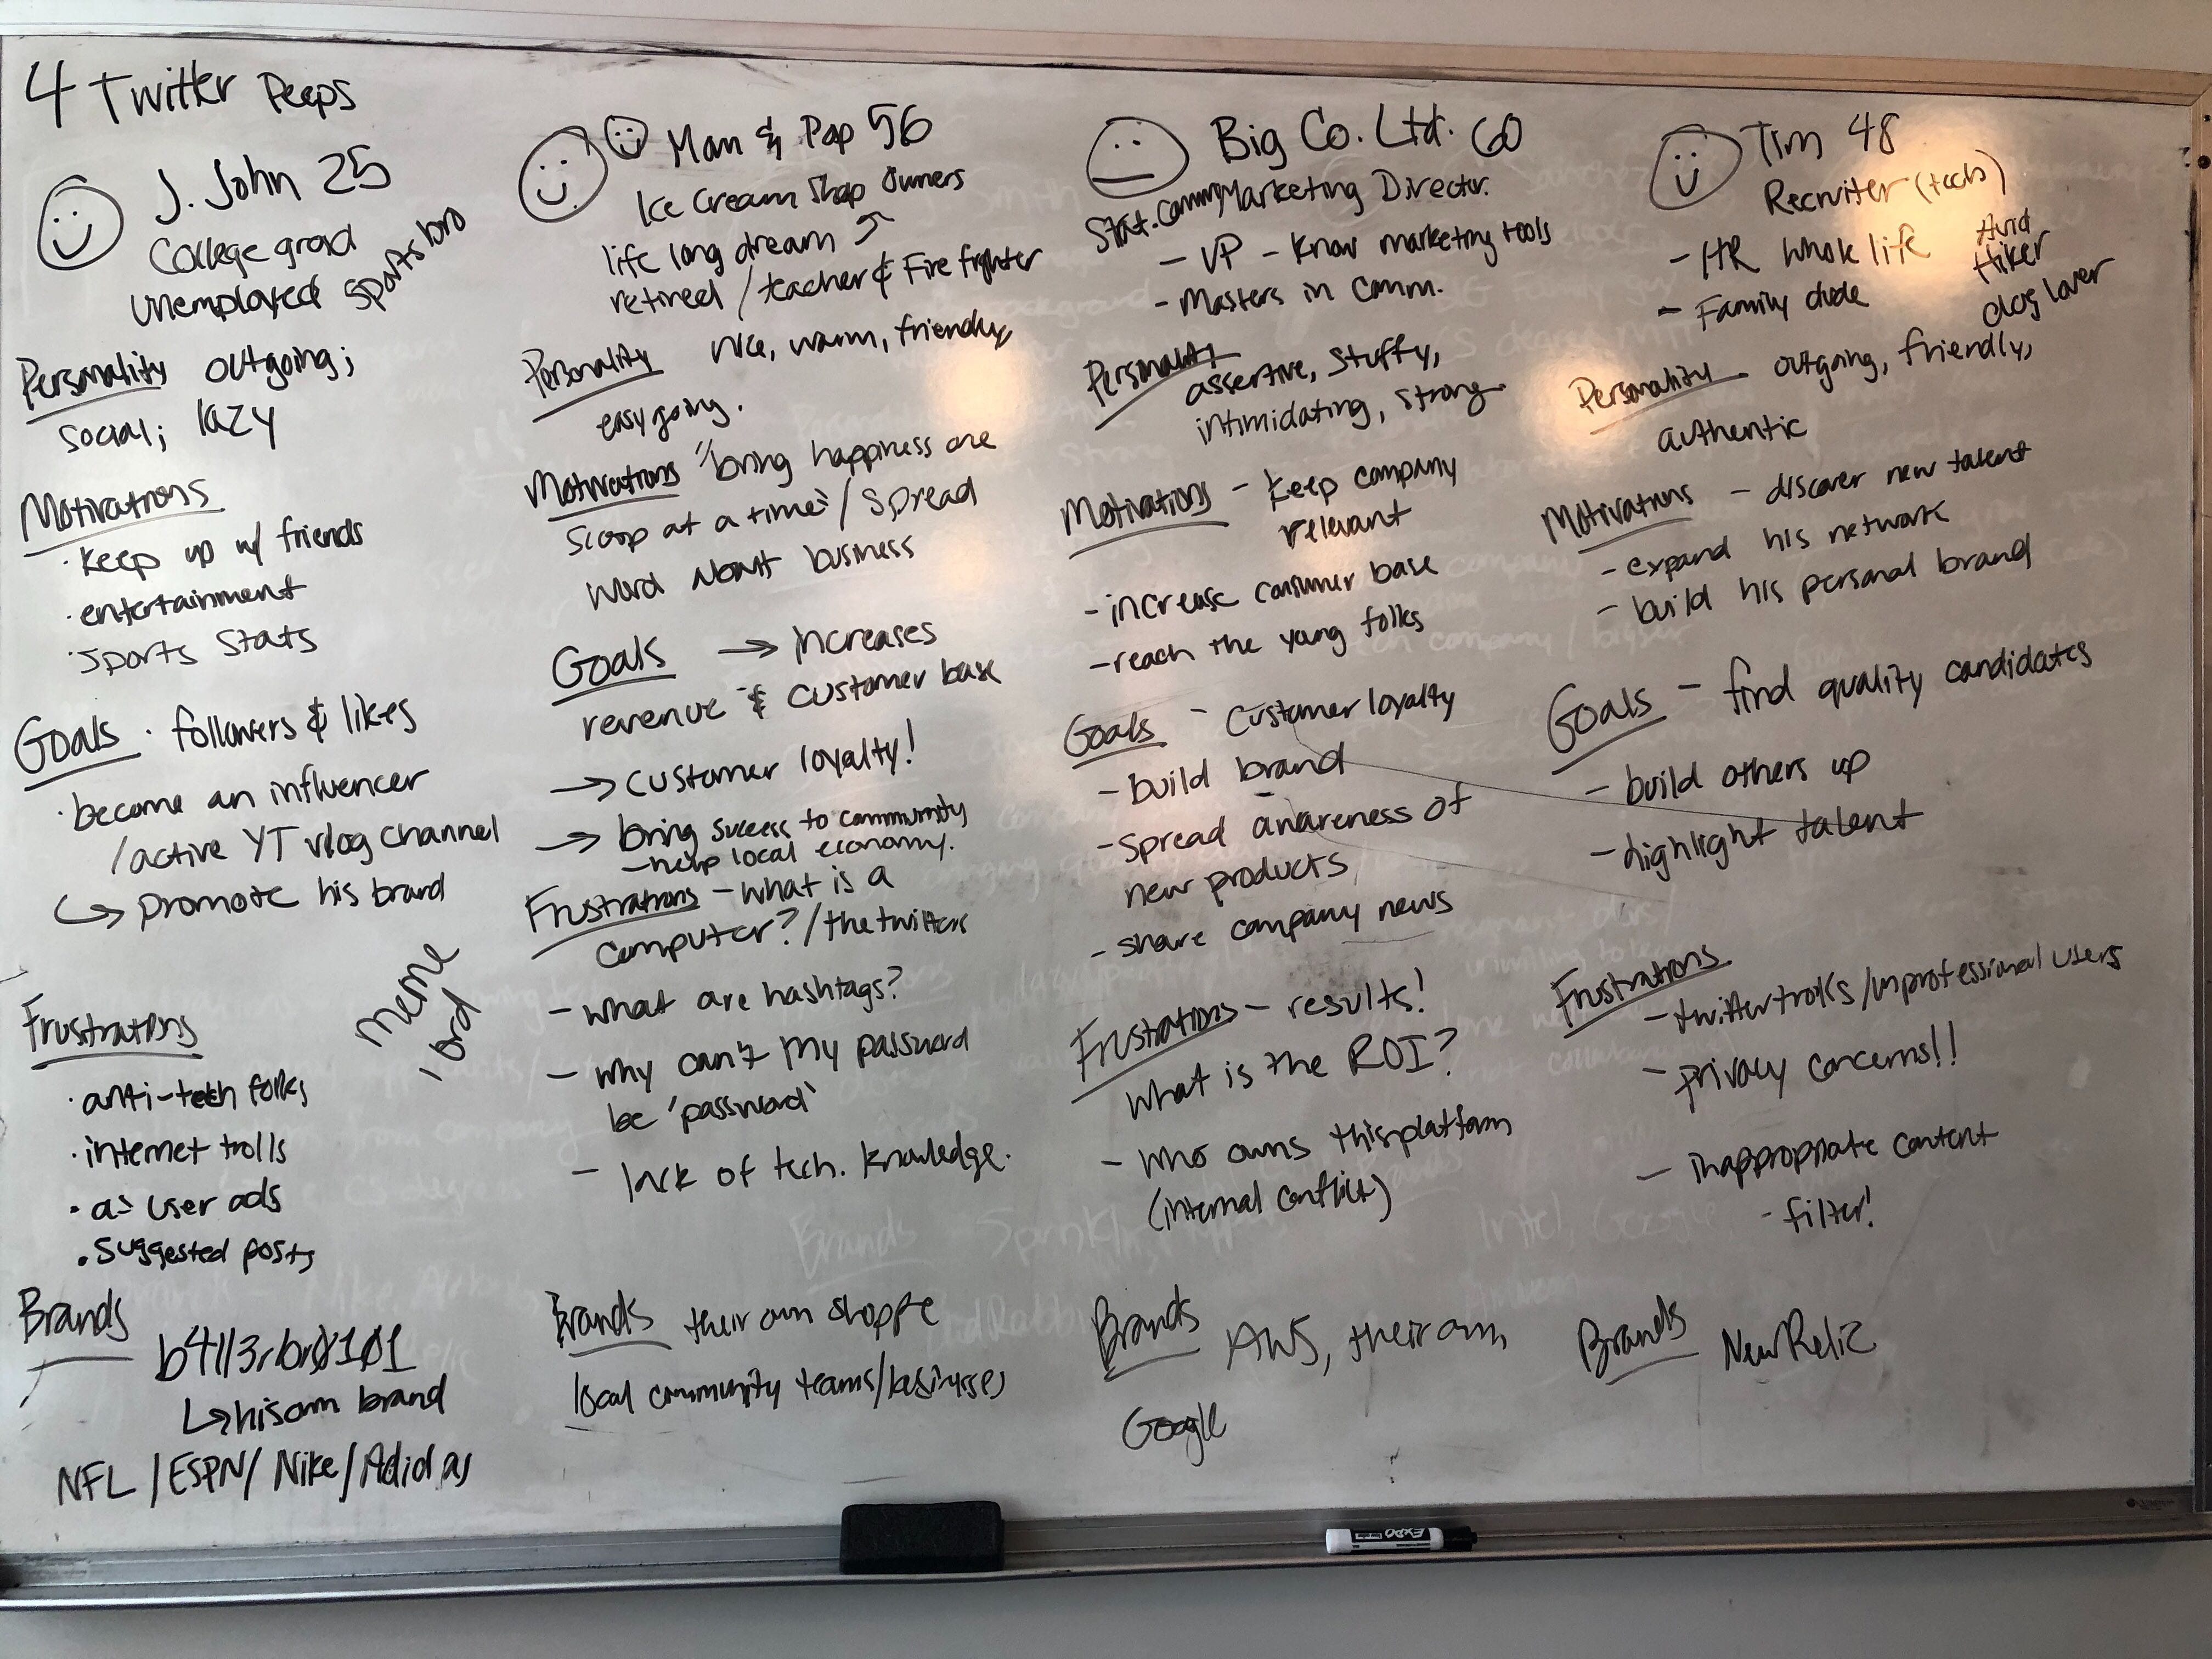 4 Twitter Peeps
J. John 25
College grad
Unemployed sports bro
Personality outgoing;
social; lazy
Motivations
· keep up w/ friends
· entertainment
· sports stats
Goals · followers & likes
· become an influencer
/active YT vlog channel
↳ promote his brand
meme
lord
Frustrations
· anti-tech folks
· internet trolls
· as user ads
· suggested posts
Brands
b4ll3rbr0101
↳ his own brand
NFL / ESPN / Nike / Adidas
Mom & Pop 56
Ice Cream Shop Owners
life long dream
retired / teacher & Fire fighter
Personality nice, warm, friendly,
easy going.
Motivations "bring happiness one
scoop at a time" / spread
word about business
Goals → Increases
revenue & customer base
→ customer loyalty!
→ bring success to community
- help local economy.
Frustrations - what is a
computer? / the twitter
- what are hashtags?
- why can't my password
be 'password'
- lack of tech. knowledge.
Brands their own shoppe
local community teams/businesses
Big Co. Ltd. 60
Strat. Comm/Marketing Director.
- VP - know marketing tools
- Masters in Comm.
Personality
assertive, stuffy,
intimidating, strong
Motivations - keep company
relevant
- increase consumer base
- reach the young folks
Goals - customer loyalty
- build brand
- spread awareness of
new products
- share company news
Frustrations - results!
what is the ROI?
- who owns this platform
(internal conflict)
Brands AWS, their own,
Google
Tim 48
Recruiter (tech)
- HR whole life
- Family dude
Avid
Hiker
dog lover
Personality - outgoing, friendly,
authentic
Motivations - discover new talent
- expand his network
- build his personal brand
Goals - find quality candidates
- build others up
- highlight talent
Frustrations
- twitter trolls/unprofessional users
- privacy concerns!!
- inappropriate content
- filter!
Brands New Relic
EXPO